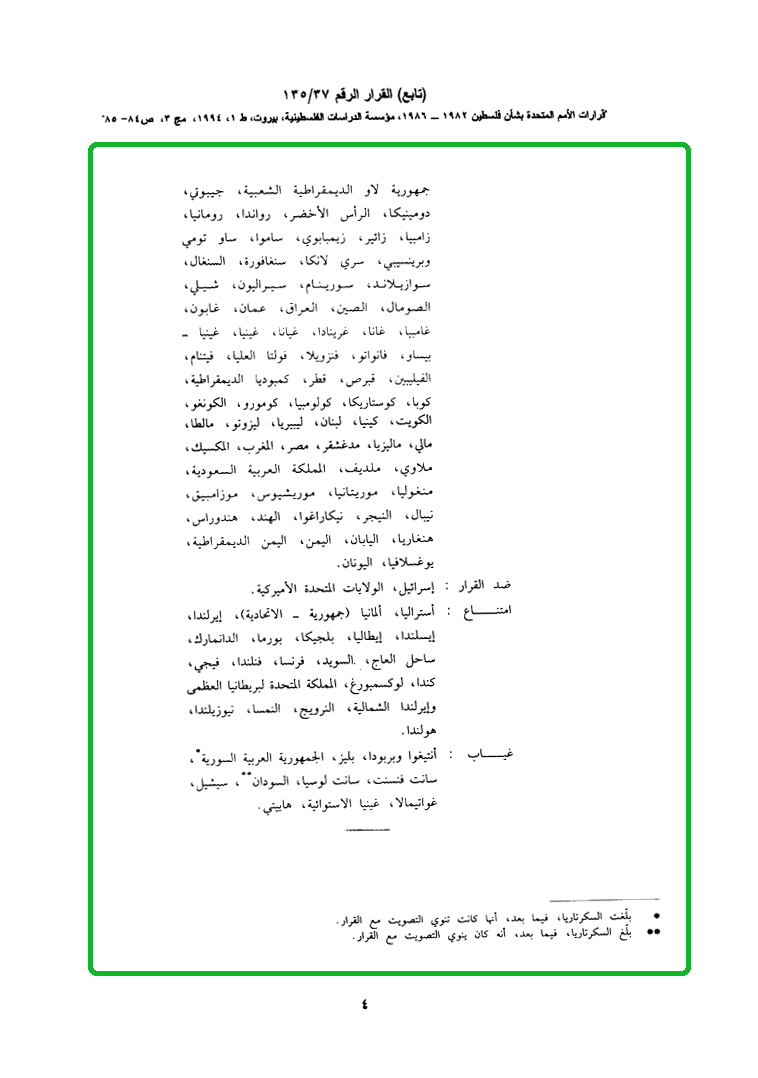 (تابع) القرار الرقم ١٣٥/٣٧
"قرارات الأمم المتحدة بشأن فلسطين ١٩٨٢ – ١٩٨٦، مؤسسة الدراسات الفلسطينية، بيروت، ط ١، ١٩٩٤، مج ٣، ص٨٤– ٨٥"
جمهورية لاو الديمقراطية الشعبية، جيبوتي،
دومينيكا، الرأس الأخضر، رواندا، رومانيا،
زامبيا، زائير، زيمبابوي، ساموا، ساو تومي
وبرينسيبي، سري لانكا، سنغافورة، السنغال،
سوازيلاند، سورينام، سيراليون، شيلي،
الصومال، الصين، العراق، عمان، غابون،
غامبيا، غانا، غرينادا، غيانا، غينيا، غينيا ـ
بيساو، فانواتو، فنزويلا، فولتا العليا، فيتنام،
الفيليبين، قبرص، قطر، كمبوديا الديمقراطية،
كوبا، كوستاريكا، كولومبيا، كومورو، الكونغو،
الكويت، كينيا، لبنان، ليبيريا، ليزوتو، مالطا،
مالي، ماليزيا، مدغشقر، مصر، المغرب، المكسيك،
ملاوي، ملديف، المملكة العربية السعودية،
منغوليا، موريتانيا، موريشيوس، موزامبيق،
نيبال، النيجر، نيكاراغوا، الهند، هندوراس،
هنغاريا، اليابان، اليمن، اليمن الديمقراطية،
يوغسلافيا، اليونان.
ضد القرار : إسرائيل، الولايات المتحدة الأميركية.
امتنـــــاع : أستراليا، ألمانيا (جمهورية ـ الاتحادية)، إيرلندا،
إيسلندا، إيطاليا، بلجيكا، بورما، الدانمارك،
ساحل العاج، السويد، فرنسا، فنلندا، فيجي،
كندا، لوكسمبورغ، المملكة المتحدة لبريطانيا العظمى
وإيرلندا الشمالية، النرويج، النمسا، نيوزيلندا،
هولندا.
غيـــــاب : أنتيغوا وبربودا، بليز، الجمهورية العربية السورية*،
سانت فنسنت، سانت لوسيا، السودان**، سيشيل،
غواتيمالا، غينيا الاستوائية، هاييتي.
* بلّغت السكرتاريا، فيما بعد، أنها كانت تنوي التصويت مع القرار.
** بلّغ السكرتاريا، فيما بعد، أنه كان ينوي التصويت مع القرار.
٤